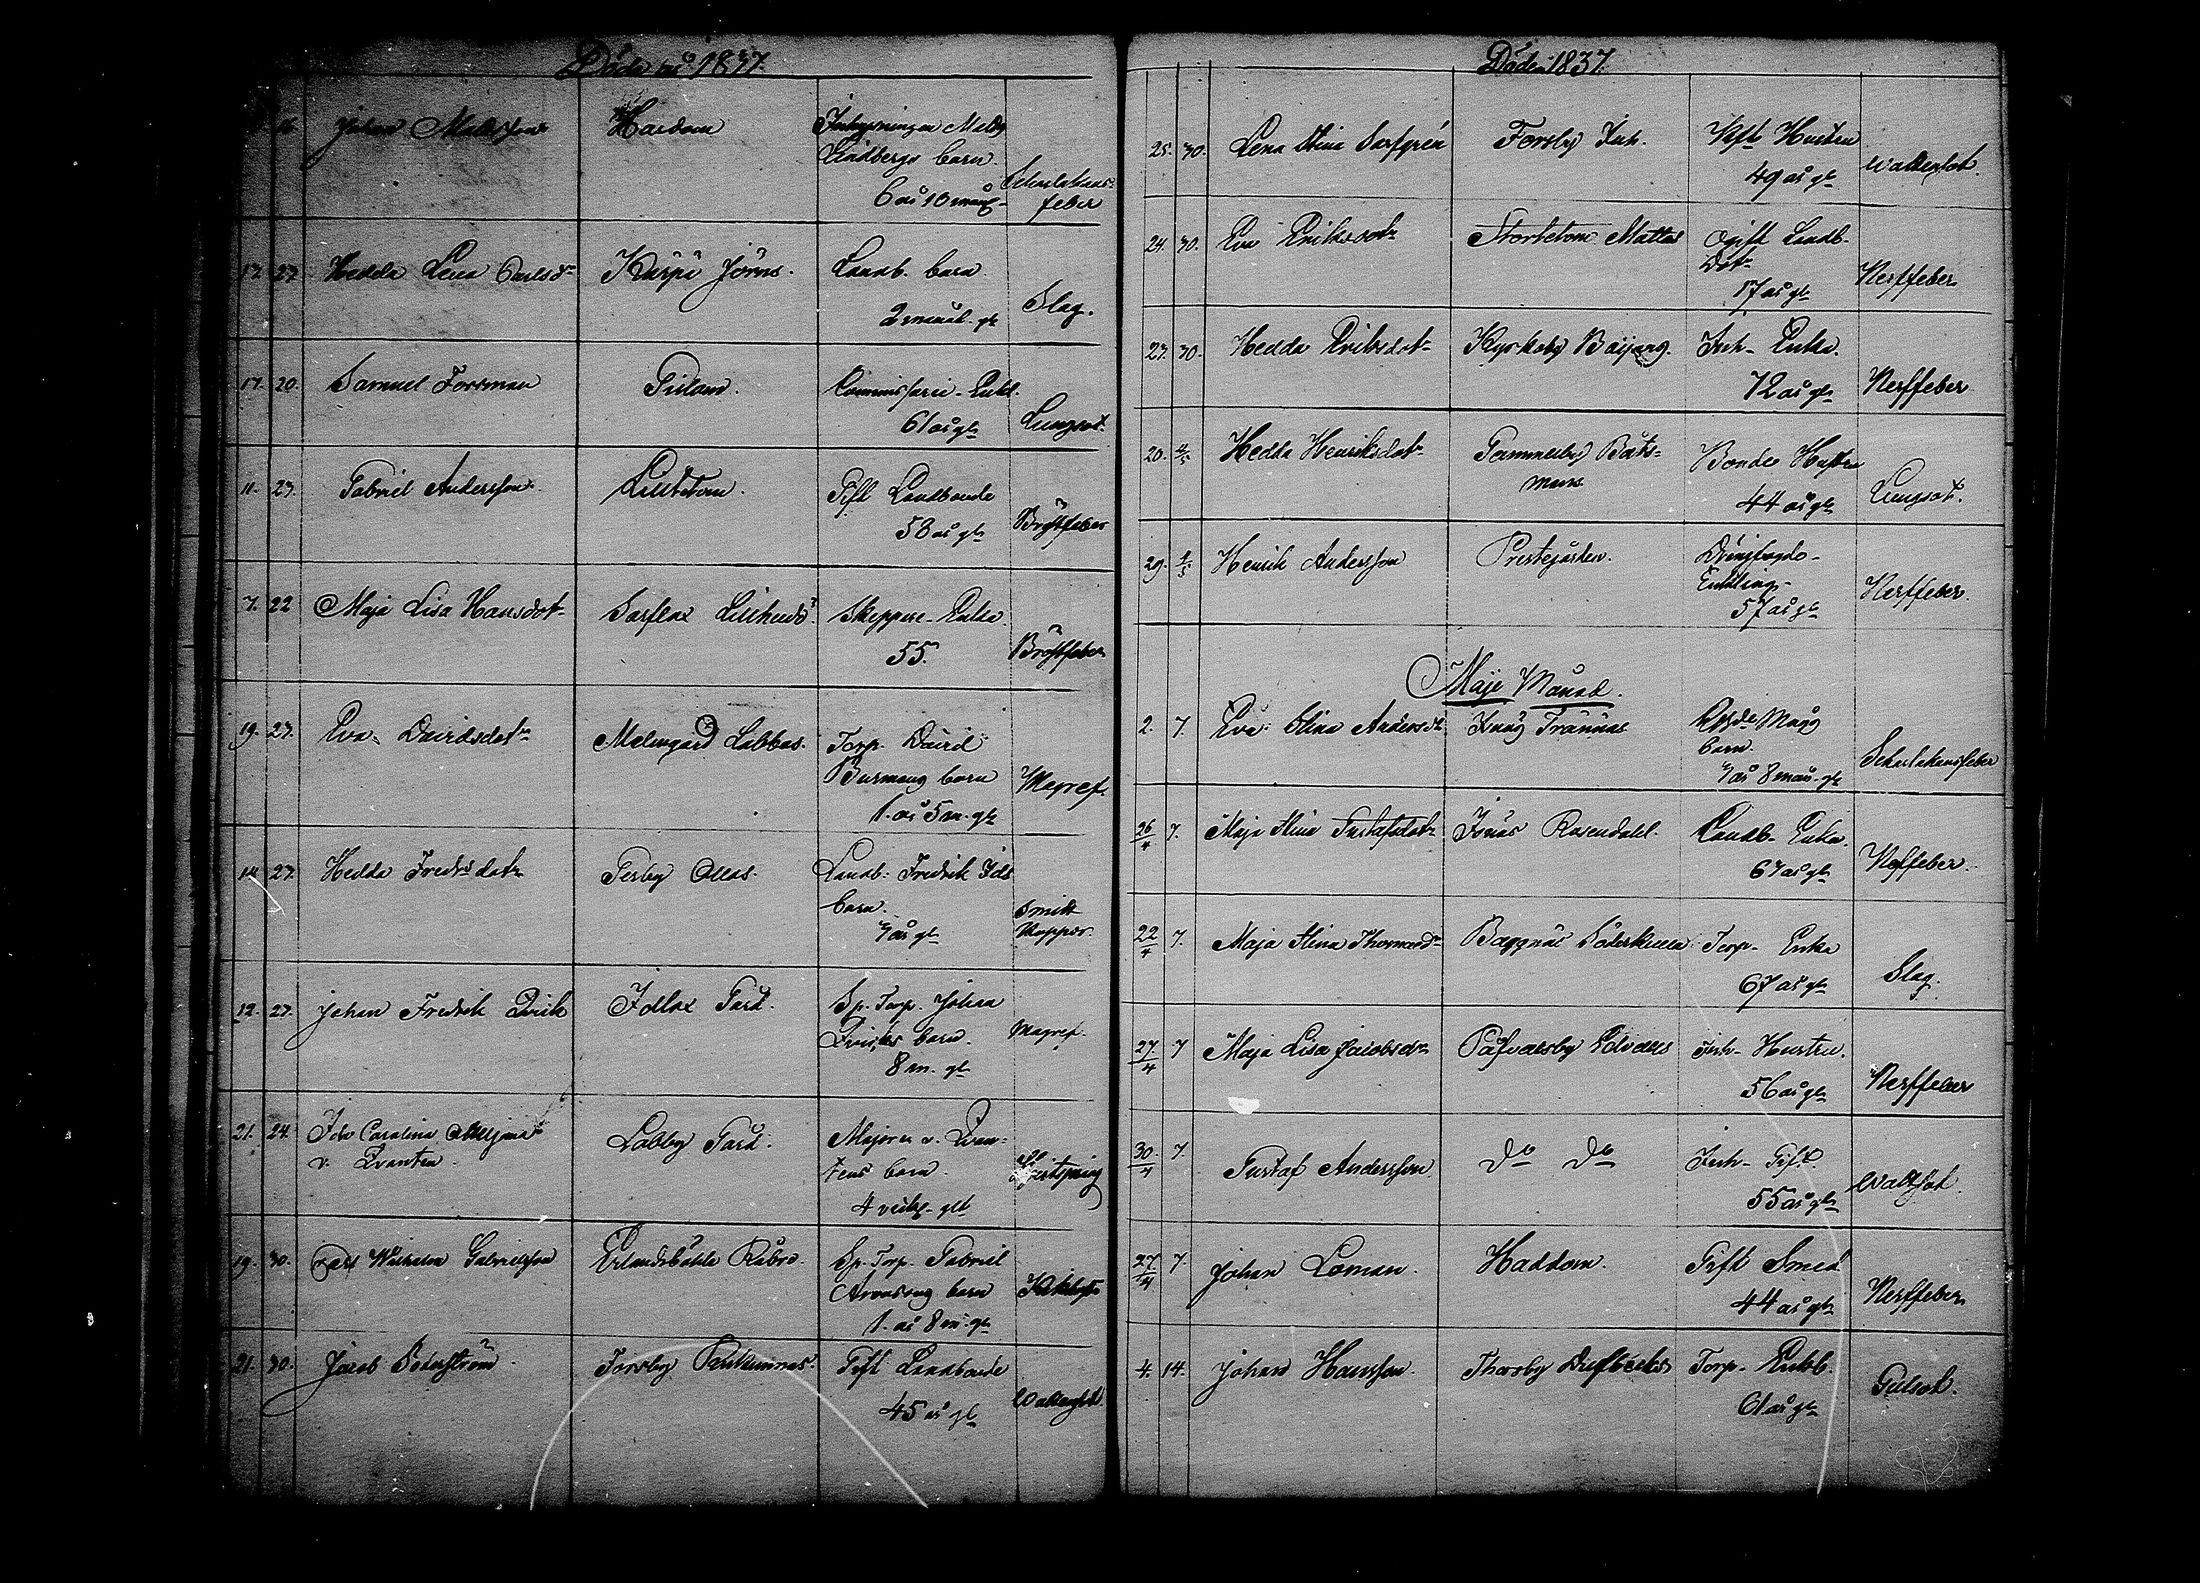 Döde år 1837.
16 Johan Mattsson Hardom Inhysningen Matts
Lindbergs barn.
6 år 10 mån Scharlakans-
feber
17. 23. Hedda Lena Carlsdr Kärpi Jörns. Landb. barn
2 mån. gl Slag.
17. 20. Samuel Forsman Gislom. Commissarie-Enkl.
61 år gl Lungsot
11. 23. Gabriel Andersson Lilltotom. Gift Landbonde
58 år gl Bröstfeber
7. 22 Maja Lisa Hansdotr Sarflax Skeppare-Enka
55. Bröstfeber
19. 23. Eva Davidsdotr Malmgård Labbas. Torp. David
Burmans barn
1. år 5 m. gl Magref.
14 23. Hedda Fredrsdotr Gesby Ollas. Landb. Fredrik
barn.
år gl Smitt
Koppor
12. 23. Johan Fredrik Qvick Isllax Gård Sp. Torp. Johan
Qvicks barn.
8 m. gl Magref.
21. 24. Ida Carolina
v. Qvanten Labby Gård. Majoren v. Qvan-
tens barn.
4 veck. glt
19. 30. Carl Wilhelm Gabrielsson Erlandsböhle Råbro. Sp. Torp. Gabriel
barn Kikhosta
1. år 8 m. gl
21. 30. Jacob Söderström Forsby Gift Landbonde
45 år gl Vattusot
Döde 1837.
25. 30. Lena Stina Sarfgrén Forsby Inh. Gift Hustru
49 år gl Wattusot.
24. 30. Eva Eriksdotr Storbetom Mattas Ogift Landb-
Dotr
17 år gl Nerffeber
23. 30. Hedda Eriksdotr Kyrkoby Inh- Enka.
72 år gl Nerffeber
20. 4/5 Hedda Henriksdotr Gammelby Båts-
mans Bonde Hustru
44 år gl Lungsot.
29. 4/5 Henrik Andersson Prestegården.
Enkling-
57 år gl Nerffeber.
Maje Månad.
2. 7. Eva Stina Andersdr Isnäs Trännas
barn.
år 8 mån. gl Scharlakansfeber
26/4 7. Maja Stina Gustafsdotr Isnäs Rosendahl. Landb- Enka.
67 år gl Nerffeber.
22/4 7. Maja Stina Thomasdr Baggnäs Söderkulla Torp- Enka
67 år gl Slag.
27/4 7 Maja Lisa Jacobsdr Påfvalsby Edvalls Inh- Hustru.
56 år gl Nerffeber
30/4 7. Gustaf Andersson. Do Do Inh- Gift.
55 år gl Wattsot.
27/4 7. Johan Loman. Haddom. Gift Smed
44 år gl Nerffeber
4. 14. Johan Hansson. Thorsby Torp- Enkl.
61 år gl Gulsot.